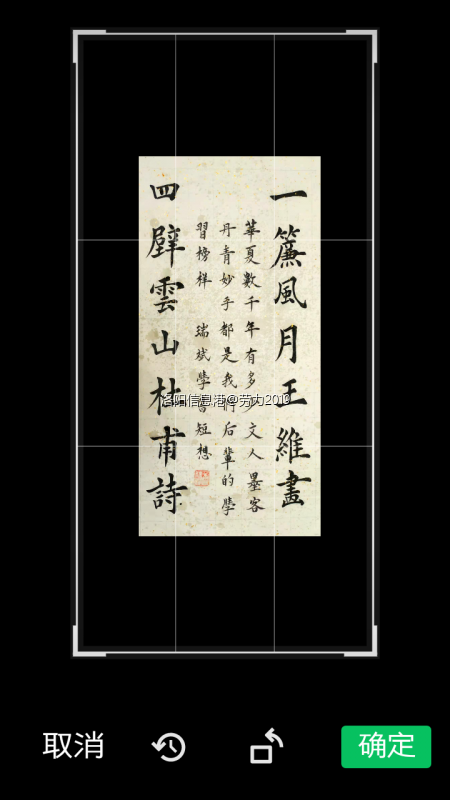 一簾風月王維畫
華夏數千年有多少文人墨客
丹青妙手都是我們后輩的學
習榜样 瑞斌學書短想
四壁雲山杜甫詩
洛阳信息港@劳力2019
取消
确定